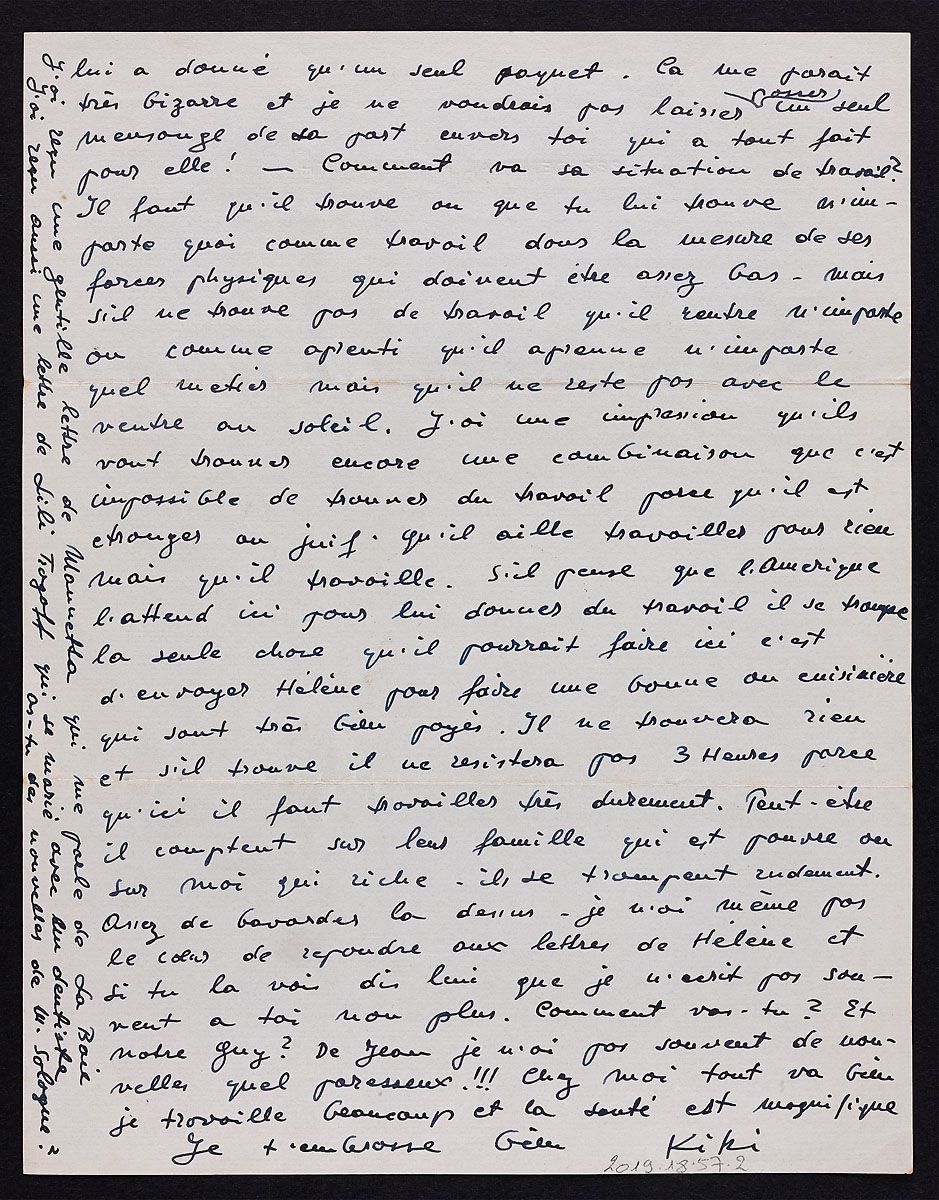 lui a donné qu'un seul paquet. Ca me parait
très bizarre et je ne voudrais pas laisser passer un seul
mensonge de sa part envers toi qui a tout fait
pour elle! — Comment va sa situation de travail?
Il faut qu'il trouve ou que tu lui trouve n'im-
porte quoi comme travail dans la mesure de ses
forces physiques qui doivent être assez bas - mais
s'il ne trouve pas de travail qu'il rentre n'importe
ou comme aprenti qu'il aprenne n'importe
quel metier mais qu'il ne reste pas avec le
ventre au soleil. J'ai une impression qu'ils
vont trouver encore une combinaison que c'est
impossible de trouver du travail parce qu'il est
etranger ou juif. Qu'il aille travailler pour rien
mais qu'il travaille. S'il pense que l'Amerique
l'attend ici pour lui donner du travail il se trompe
la seule chose qu'il pourrait faire ici c'est
d'envoyer Hélène pour faire une bonne ou cuisinière
qui sont très bien payés. Il ne trouvera rien
et s'il trouve il ne resistera pas 3 Heures parce
qu'ici il faut travailler très durement. Peut-être
il comptent sur leur famille qui est pauvre ou
sur moi qui riche - ils se trompent rudement.
Assez de bavarder la dessus - je n'ai même pas
le cœur de repondre aux lettres de Hélène et
si tu la vois dis lui que je n'ecrit pas sou-
vent a toi non plus. Comment vas-tu? Et
notre Guy? De Jean je n'ai pas souvent de nou-
velles quel paresseux!!! Chez moi tout va bien
je travaille beaucoup et la santé est magnifique
Je t'embrasse bien Kiki
2019.18.57.2
J'ai reçu une gentille lettre de Mannetta qui me parle de La Baie
J'ai reçu aussi une lettre de Lili qui se marie avec un dentiste
as-tu des nouvelles de M. Sologne?